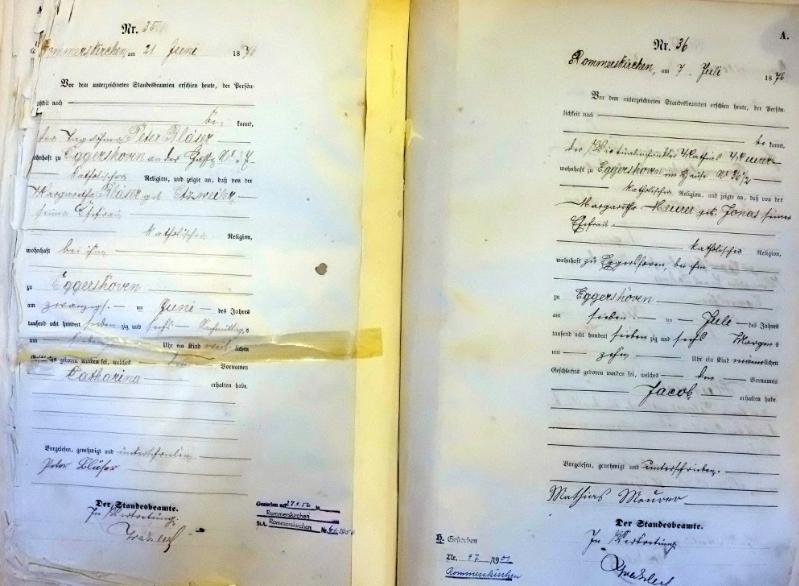 Nr. 35
Rommerskirchen am 21 Juni 1876
Vor dem unterzeichneten Standesbeamten erschien heute, der Persön-
lichkeit nach
be kannt,
der Tagelöhner Peter
wohnhaft zu Eggershoven an der
katholischer Religion, und zeigte an, daß von der
Margaretha geb.
seiner Ehefrau
katholischer Religion,
wohnhaft bei ihm
zu Eggershoven
am zwanzigsten Juni des Jahres
tausend acht hundert sieben zig und sechs Nachmittags
um Uhr ein Kind weib lichen
Geschlechts geboren worden sei, welches den Vornamen
Catharina erhalten habe.
Vorgelesen, genehmigt und unterschrieben
Peter
Der Standesbeamte.
In Vertretung
Gestorben am
Rommerskirchen
StA. Rommerskirchen Nr.
A.
Nr. 36
Rommerskirchen, am 7 Juli 1876
Vor dem unterzeichneten Standesbeamten erschien heute, der Persön-
lichkeit nach
be kannt,
der Victualienhändler Mathias Meurer
wohnhaft zu Eggershoven im Hause No 36/2
katholischer Religion, und zeigte an, daß von der
Margaretha Meurer geb. Jonas seiner
Ehefrau
katholischer Religion,
wohnhaft zu Eggershoven, bei ihm
zu Eggershoven
am sieben ten Juli des Jahres
tausend acht hundert sieben zig und sechs Morgens
um zehn Uhr ein Kind männlichen
Geschlechts geboren worden sei, welches den Vornamen
Jacob erhalten habe.
Vorgelesen, genehmigt und unterschrieben.
Mathias Meurer
Der Standesbeamte.
In Vertretung
H. Gestorben
Nr.
Rommerskirchen